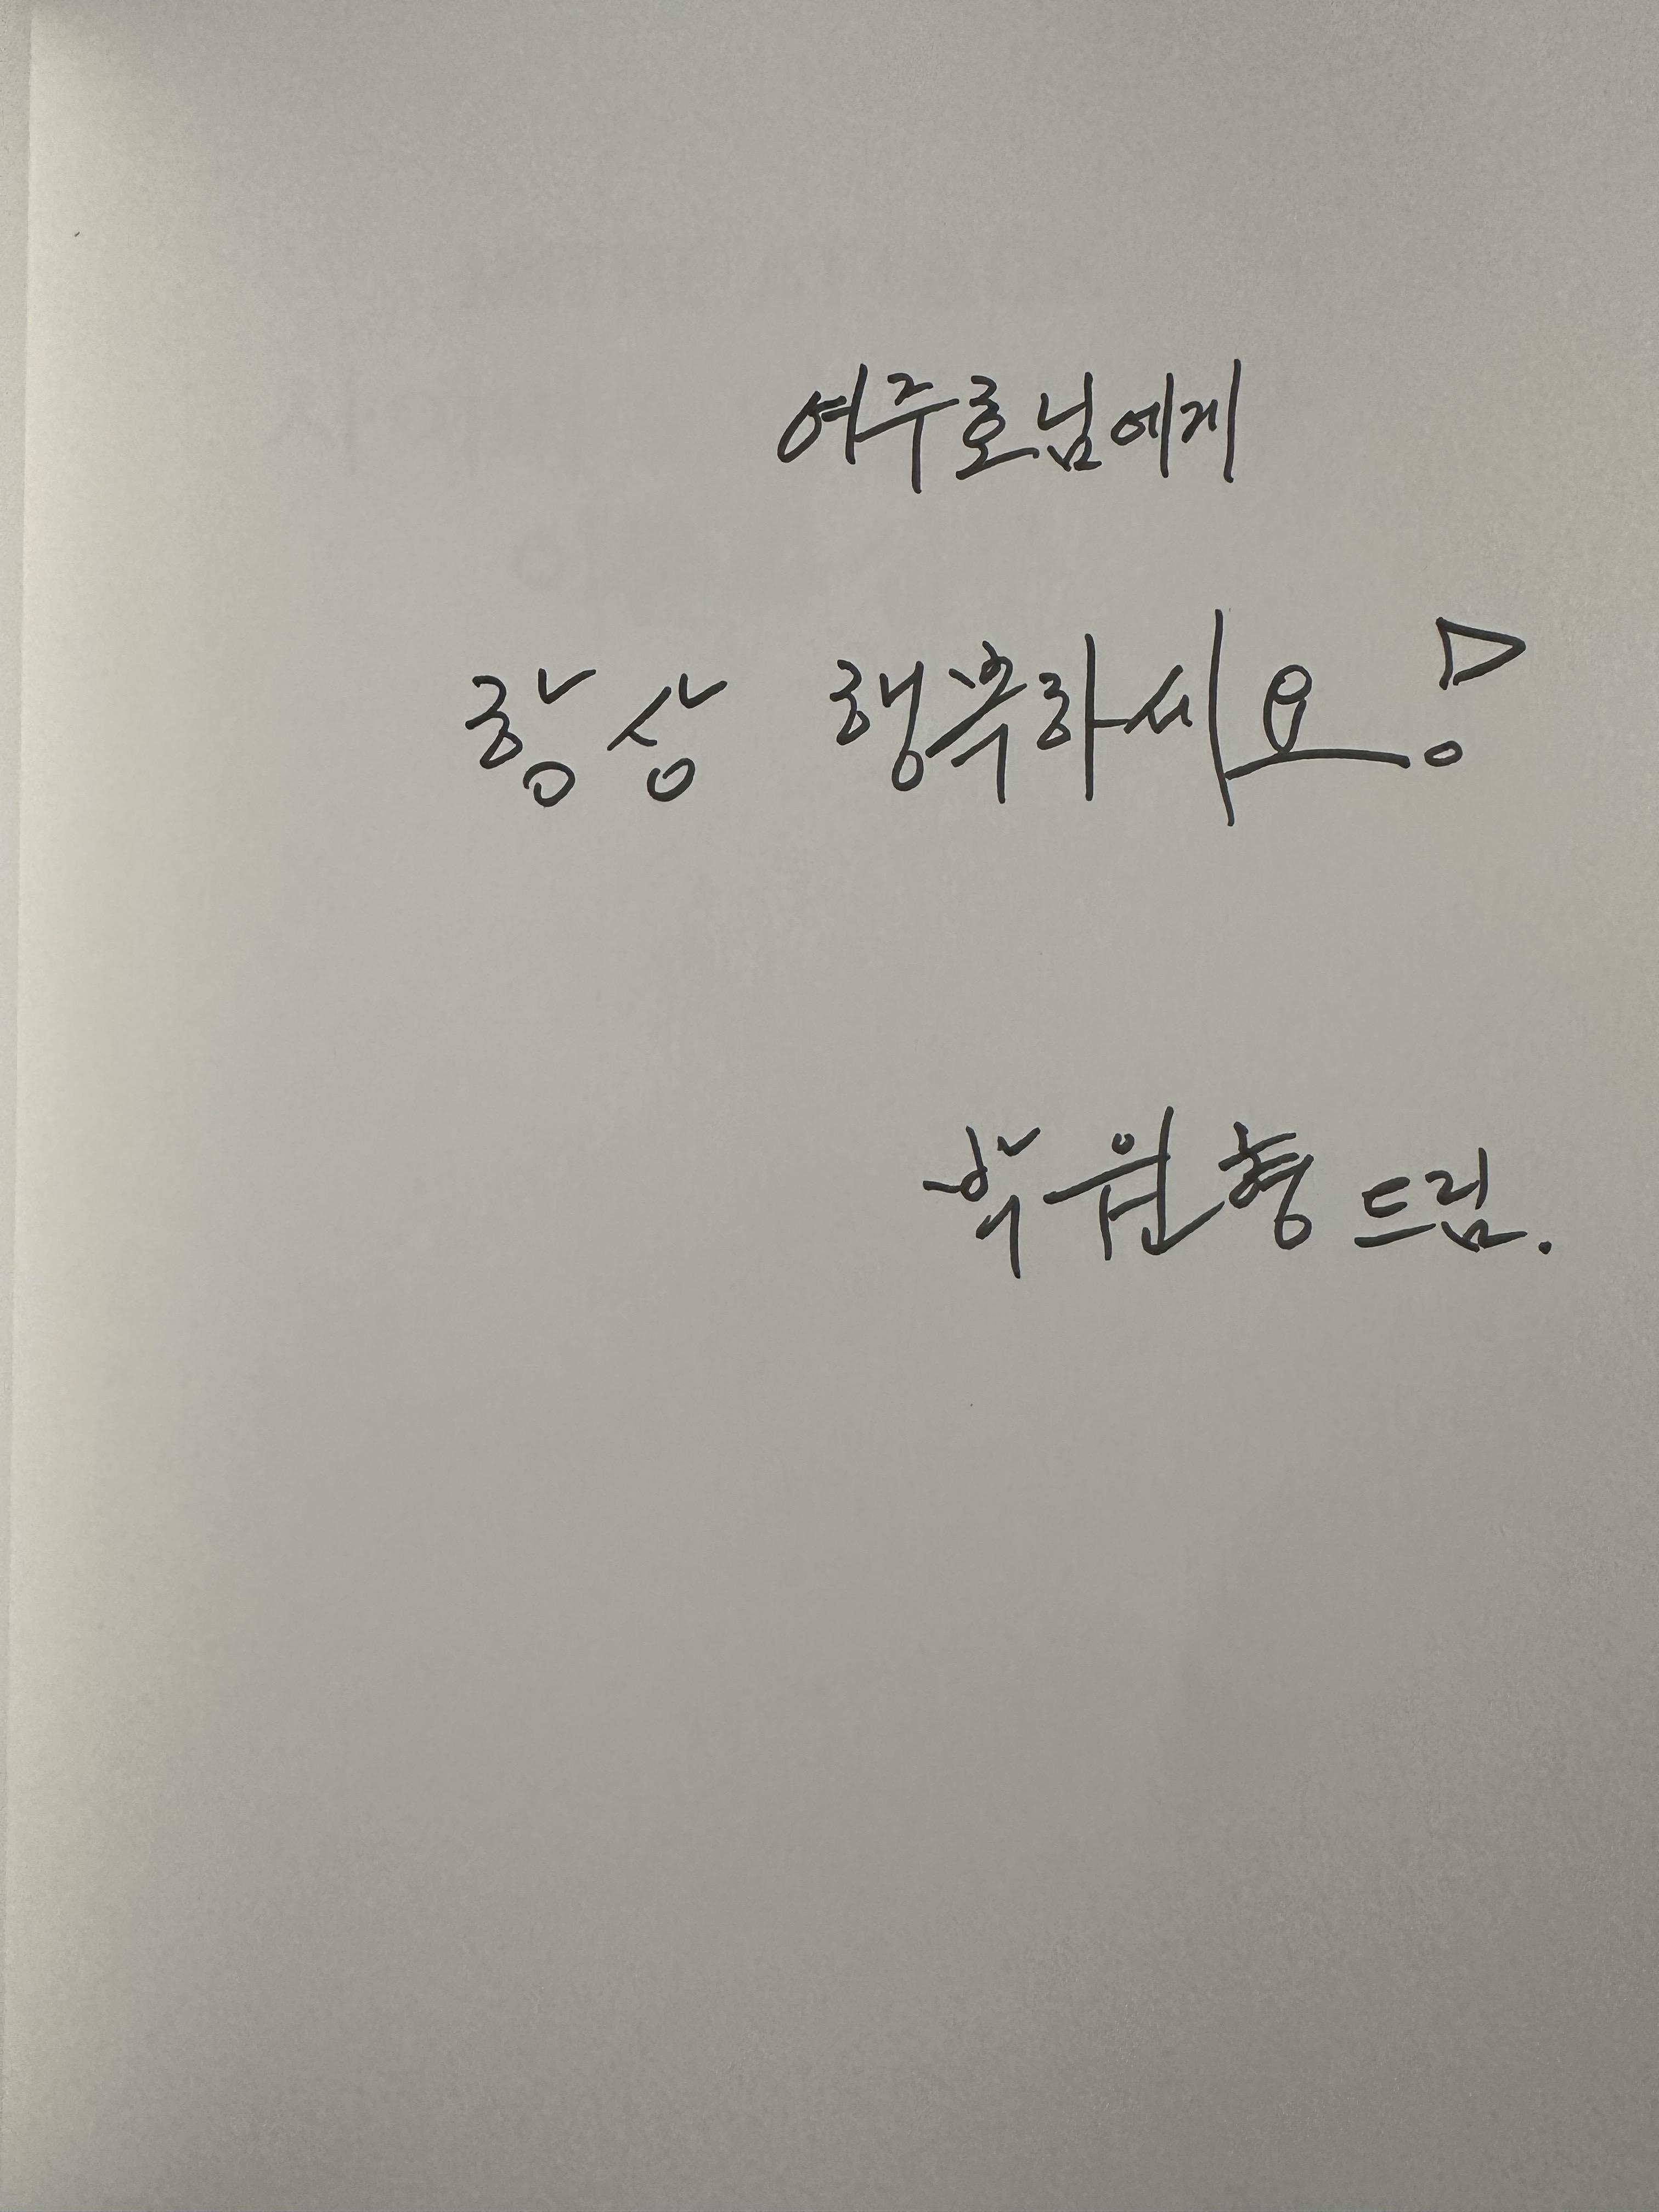 여주호님에게
항상 행복하세요!
박원형 드림.